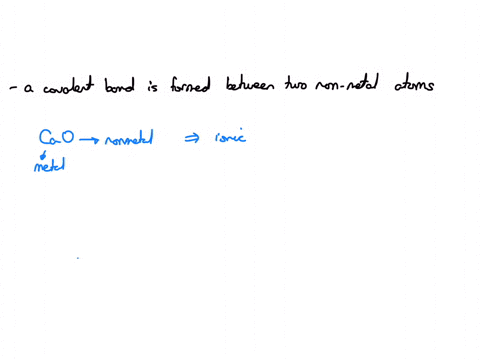 - a covalent bond is formed between two non-metal atoms
CaO → nonmetal ⇒ ionic
↓
metal